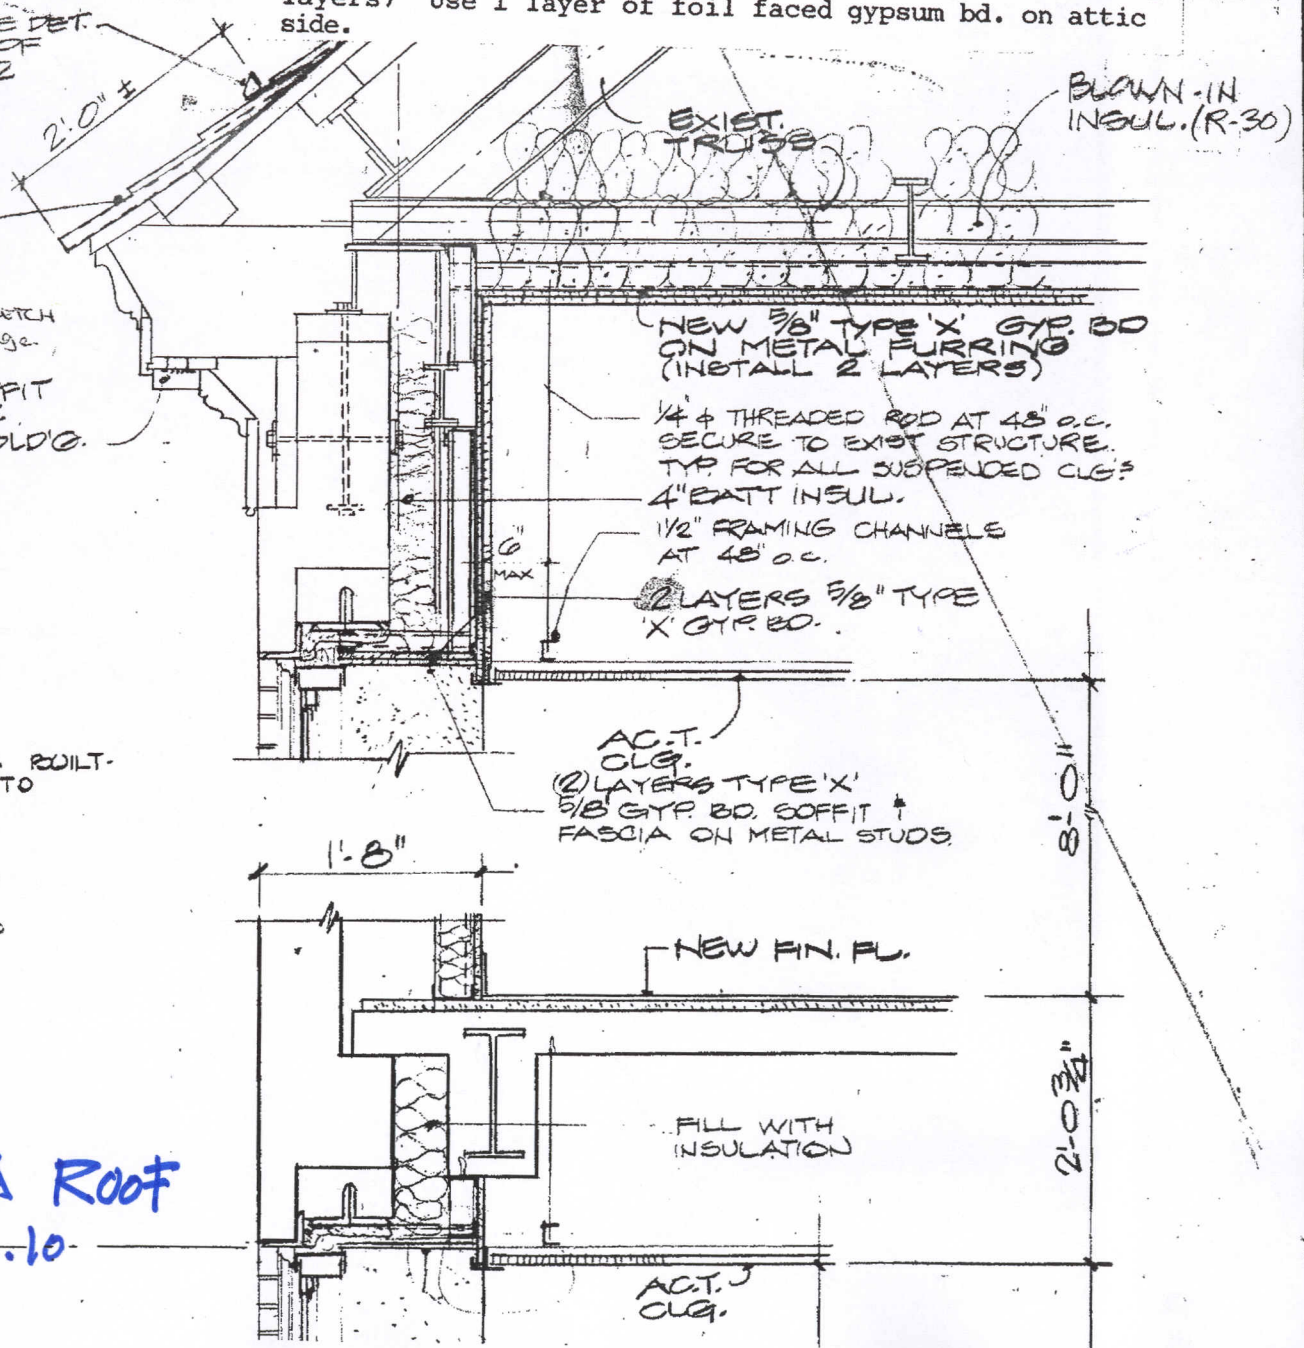 layers) Use 1 layer of foil faced gypsum bd. on attic
side.
E DET.
OF
2
2'-0" ±
EXIST.
TRUSS
BLOWN-IN
INSUL.(R-30)
ETCH
ge.
FIT
OLD'G.
NEW 5/8" TYPE 'X' GYP. BD
ON METAL FURRING
(INSTALL 2 LAYERS)
1/4" ϕ THREADED ROD AT 48" o.c.
SECURE TO EXIST STRUCTURE.
TYP FOR ALL SUSPENDED CLG'S
4" BATT INSUL.
1 1/2" FRAMING CHANNELS
AT 48" o.c.
6"
MAX
2 LAYERS 5/8" TYPE
'X' GYP. BD.
A.C.T.
CLG.
(2) LAYERS TYPE 'X'
5/8" GYP. BD. SOFFIT &
FASCIA ON METAL STUDS.
BUILT-
TO
8'-0"
1'-8"
NEW FIN. FL.
2'-0 3/4"
FILL WITH
INSULATION
A ROOF
.10
A.C.T.
CLG.